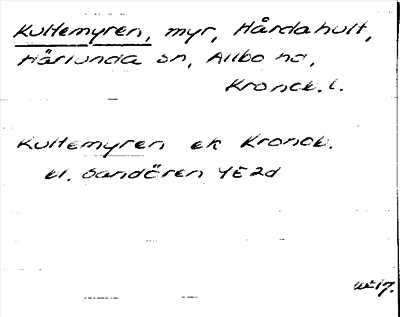 Kultemyren, myr, Hårdahult,
Härlunda sn, Allbo hd,
Kronob. l.
Kultemyren ek Kronob.
bl. Sandören 4E2d
17.